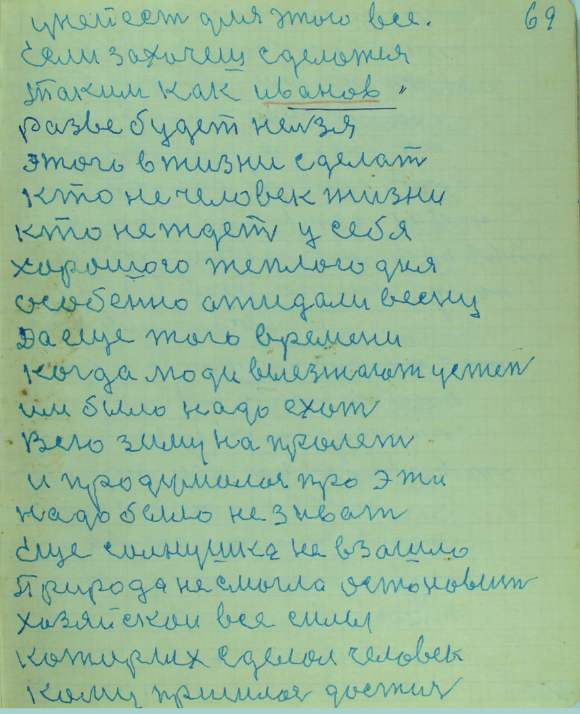 69
умеест для этого все.
Если захочеш сделатся
таким как иванов"
разве будет нелзя
Этого в жизни сделат
Кто не человек жизни
кто не ждет у себя
хорошого теплого дня
особенно ожидали весну
Да еще того времени
Когда люди выезжают устеп
им было надо ехат
Всю зиму на пролет
и продумался про эти
надо было не зиват
Еще солнушка не взашло
Природа не смогла остоновит
хозяйскои все силы
которых сделал человек
кому пришлос достич